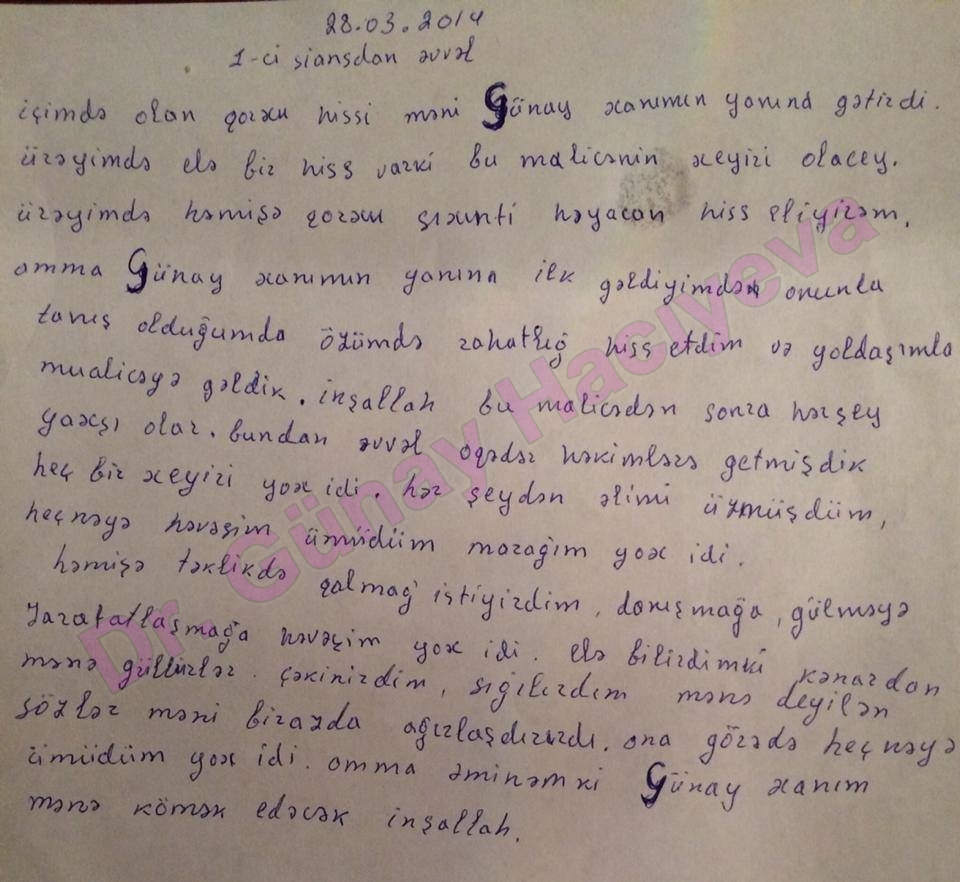 28.03.2014
1-ci siansdan əvvəl
içimdə olan qorxu hissi məni Günay xanımın yanına gətirdi.
ürəyimdə elə bir hiss varki bu malicənin xeyiri olacey.
ürəyimdə həmişə qorxu sıxınti həyacan hiss eliyirəm.
amma Günay xanımın yanına ilk gəldiyimdən onunla
tanış olduğumda özümdə rahatlığ hiss etdim və yoldaşımla
mualicəyə gəldik. inşallah bu malicədən sonra hərşey
yaxşı olar. bundan əvvəl oqədər həkimlərə getmişdik
heç bir xeyiri yox idi. hər şeydən əlimi üzmüşdüm,
heçnəyə həvəsim ümüdüm marağım yox idi.
həmişə təklikdə qalmağ istiyirdim, danışmağa, gülməyə
zarafatlaşmağa həvəsim yox idi. elə bilirdimki kənardan
mənə güllürlər. çəkinirdim, sığılırdım mənə deyilən
sözlər məni birazda ağırlaşdırırdı. ona görədə heçnəyə
ümüdüm yox idi. amma əminəmki Günay xanım
mənə kömək edəcək inşallah.
Dr. Günay Hacıyeva